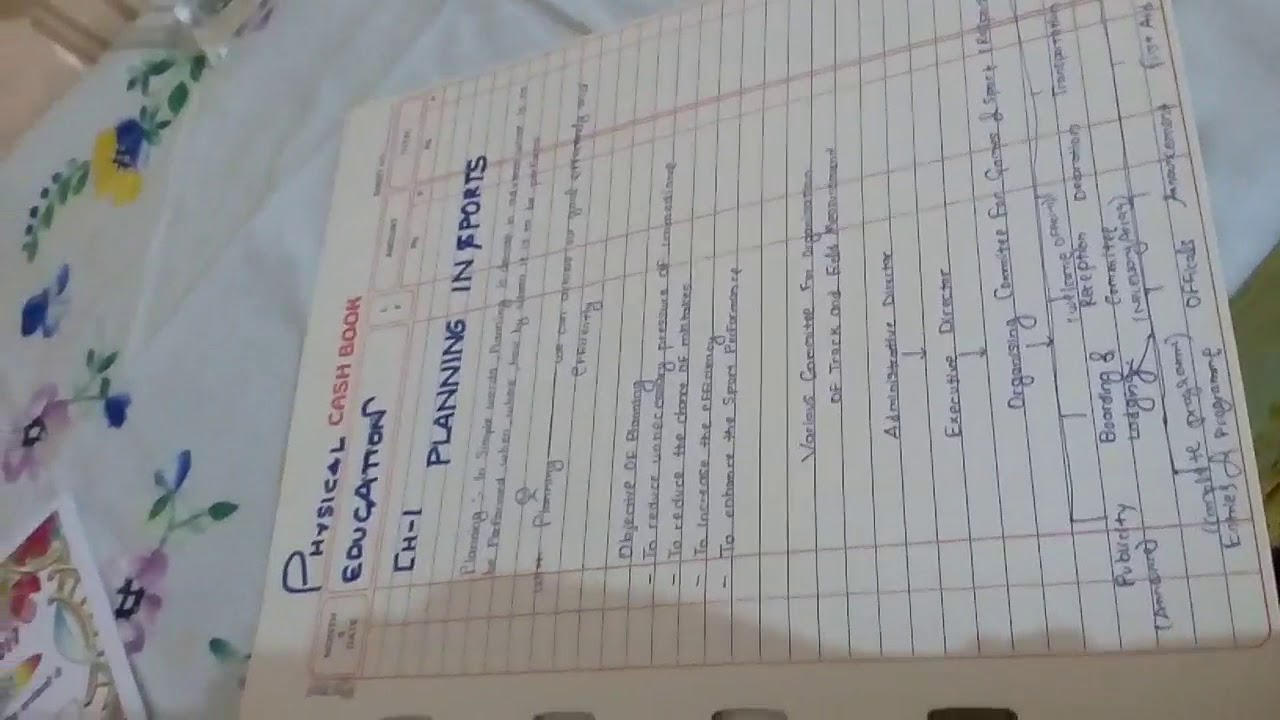 PHYSICAL CASH BOOK
EDUCATION
MONTH & DATE
AMOUNT
TOTAL
CH-1 PLANNING IN SPORTS
Planning :- In Simple words, Planning is done in advance
be Performed when where, how by whom it is to be perform
Planning we can achieve our goal effectively and
efficiently
Objective OF Planning
- To reduce unnecessary pressure of immediate
- To reduce the chance OF mistakes
- To Increase the efficiency
- To enhance the Sport Performance
Various Committee For Organization
OF Track and Field
Administrative Director
Executive Director
Organising Committee For Games & Sport
Publicity
Boarding & Lodging
(Welcome
Reception
Decoration
Transportation
Committee
(Announ
(complete program)
Entries & Programme
Officials
Announcement
First Aid